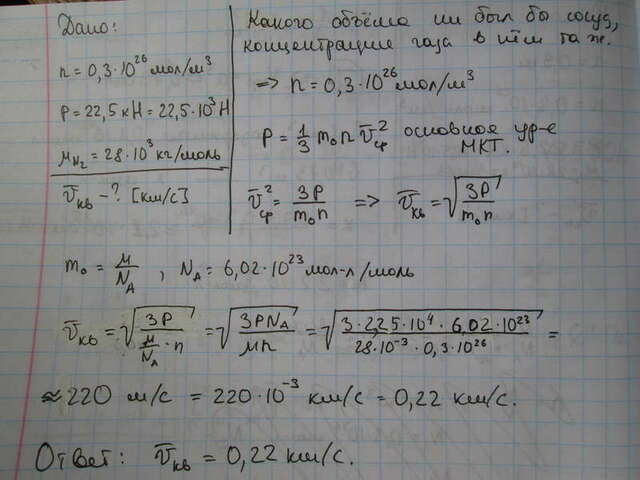 Дано:
n = 0,3·10²⁶ мол/м³
P = 22,5 кН = 22,5·10³ Н
μ_N₂ = 28·10³ кг/моль
v̅кв - ? [км/с]
Какого объёма ни был бы сосуд,
концентрация газа в нём та ж.
=> n = 0,3·10²⁶ мол/м³
P = 1/3 m₀ n v̅²ср основное ур-е
МКТ.
v̅²ср = 3P/(m₀n) => v̅кв = √(3P/(m₀n))
m₀ = μ/N_A , N_A = 6,02·10²³ мол-л/моль
v̅кв = √(3P/(μ/N_A · n)) = √(3PN_A/(μn)) = √(3·2,25·10⁴·6,02·10²³/(28·10⁻³·0,3·10²⁶)) =
≈ 220 м/с = 220·10⁻³ км/с = 0,22 км/с.
Ответ: v̅кв = 0,22 км/с.